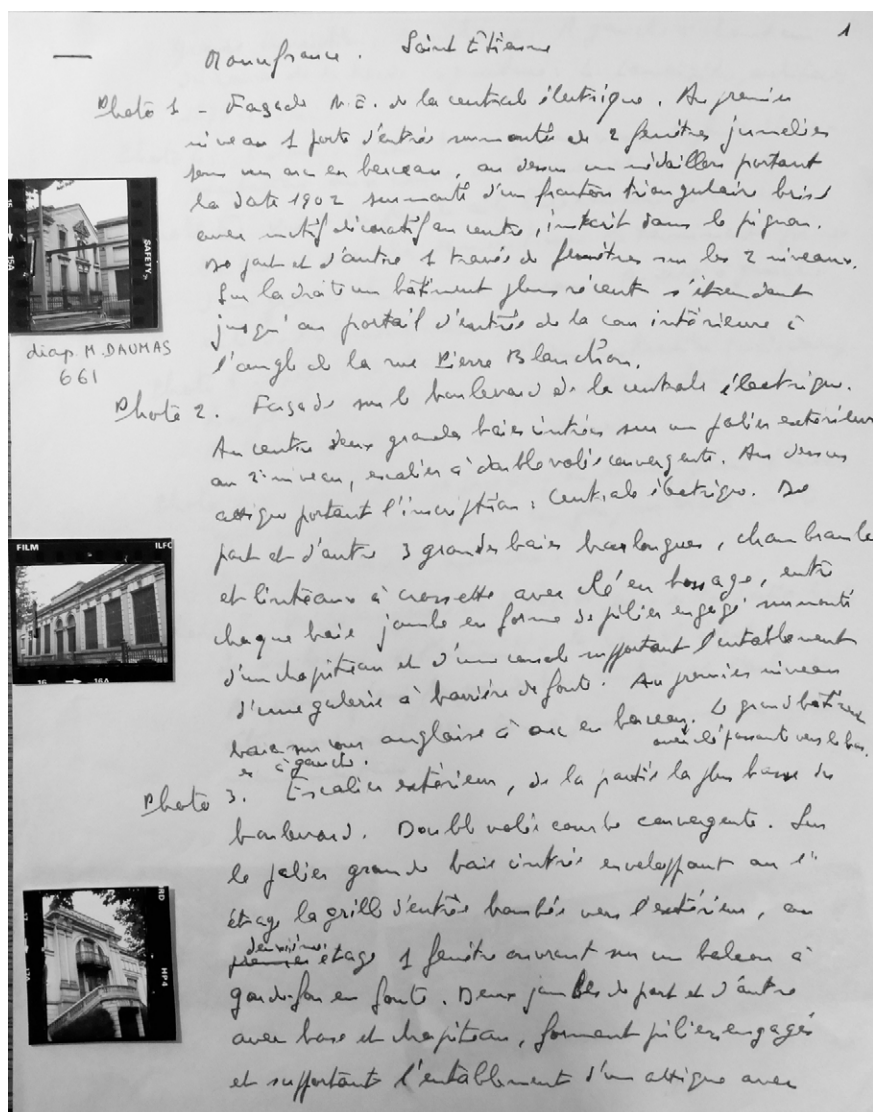 1
Manufrance. Saint Étienne
Photo 1 - Façade N.E. de la centrale électrique. Au premier
niveau 1 porte d'entrée surmontée de 2 fenêtres jumelées
sous un arc en berceau, au dessus un médaillon portant
la date 1902 surmonté d'un fronton triangulaire brisé
avec motif décoratif au centre, inscrit dans le pignon.
De part et d'autre 1 travée de fenêtres sur les 2 niveaux.
Sur la droite un bâtiment plus récent s'étendant
jusqu'au portail d'entrée de la cour intérieure à
l'angle de la rue Pierre Blanchon.
SAFETY
15A
diap. M. DAUMAS
661
Photo 2. Façade sur le boulevard de la centrale électrique.
Au centre deux grandes baies cintrées sur un palier extérieur
au 2e niveau, escalier à double volée convergente. Au dessus
attique portant l'inscription : centrale électrique. De
part et d'autre 3 grandes baies barlongues, chambranle
et linteaux à crossette avec clé en bossage, entre
chaque baie jambe en forme de pilier engagé surmonté
d'un chapiteau et d'une console supportant l'entablement
d'une galerie à barrière de fonte. Au premier niveau
baie sur cour anglaise à arc en berceau. Le grand bâtiment
avec clé passante vers le bas.
est à gauche.
FILM ILFO
16 → 16A
Photo 3. Escalier extérieur, de la partie la plus basse du
boulevard. Double volée courbe convergente. Sur
le palier grande baie cintrée enveloppant au 1er
étage la grille d'entrée bombée vers l'extérieur, au
deuxième
premier étage 1 fenêtre ouvrant sur un balcon à
garde-fou en fonte. Deux jambes de part et d'autre
avec base et chapiteau, forment piliers engagés
et supportant l'entablement d'un attique avec
RD
HP4